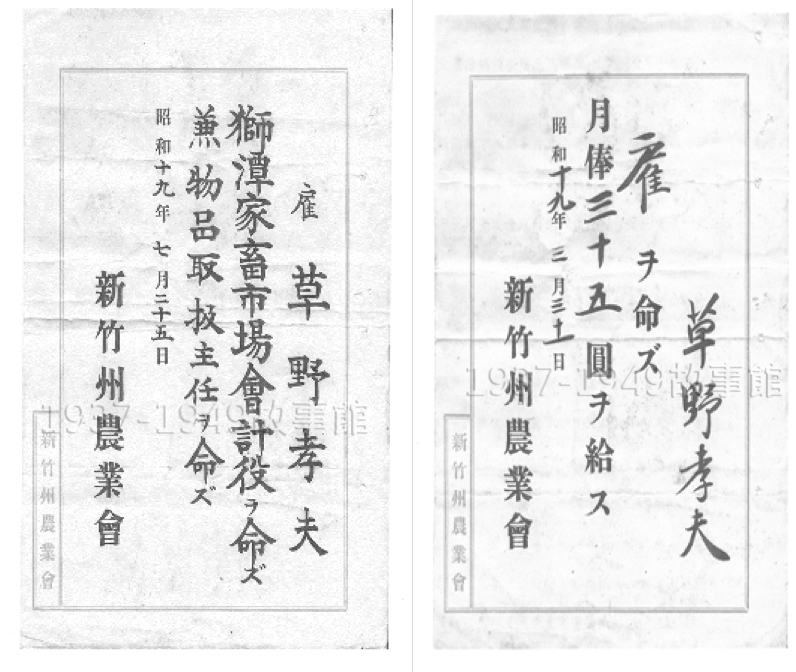 雇 草野孝夫
獅潭家畜市場會計役ヲ命ズ
兼物品取扱主任ヲ命ズ
昭和十九年七月二十五日
新竹州農業會
新竹州農業會
草野孝夫
雇ヲ命ズ
月俸三十五圓ヲ給ス
昭和十九年三月三十一日
新竹州農業會
新竹州農業會
1937-1949故事館
1937-1949故事館